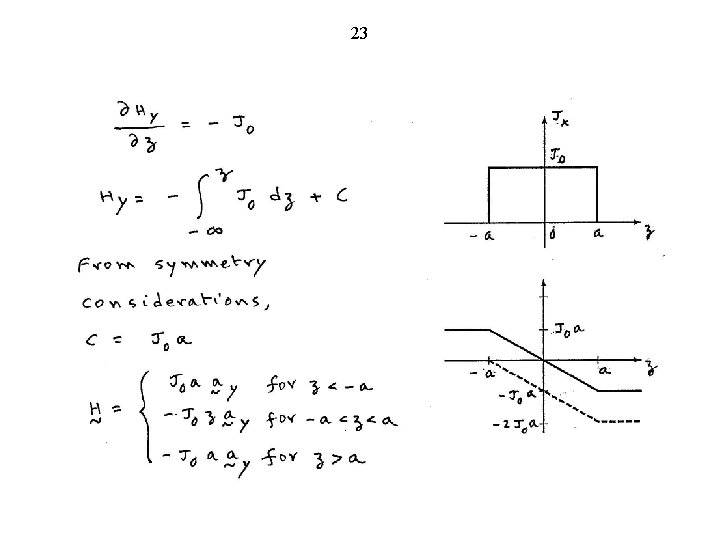 23
∂Hy/∂z = - J₀
Hy = - ∫_{-∞}^{z} J₀ dz + C
From symmetry
considerations,
C = J₀ a
H = { J₀ a a_y for z < -a
- J₀ z a_y for -a < z < a
- J₀ a a_y for z > a
Jx
J₀
-a 0 a z
J₀ a
-a a z
-J₀ a
-2 J₀ a